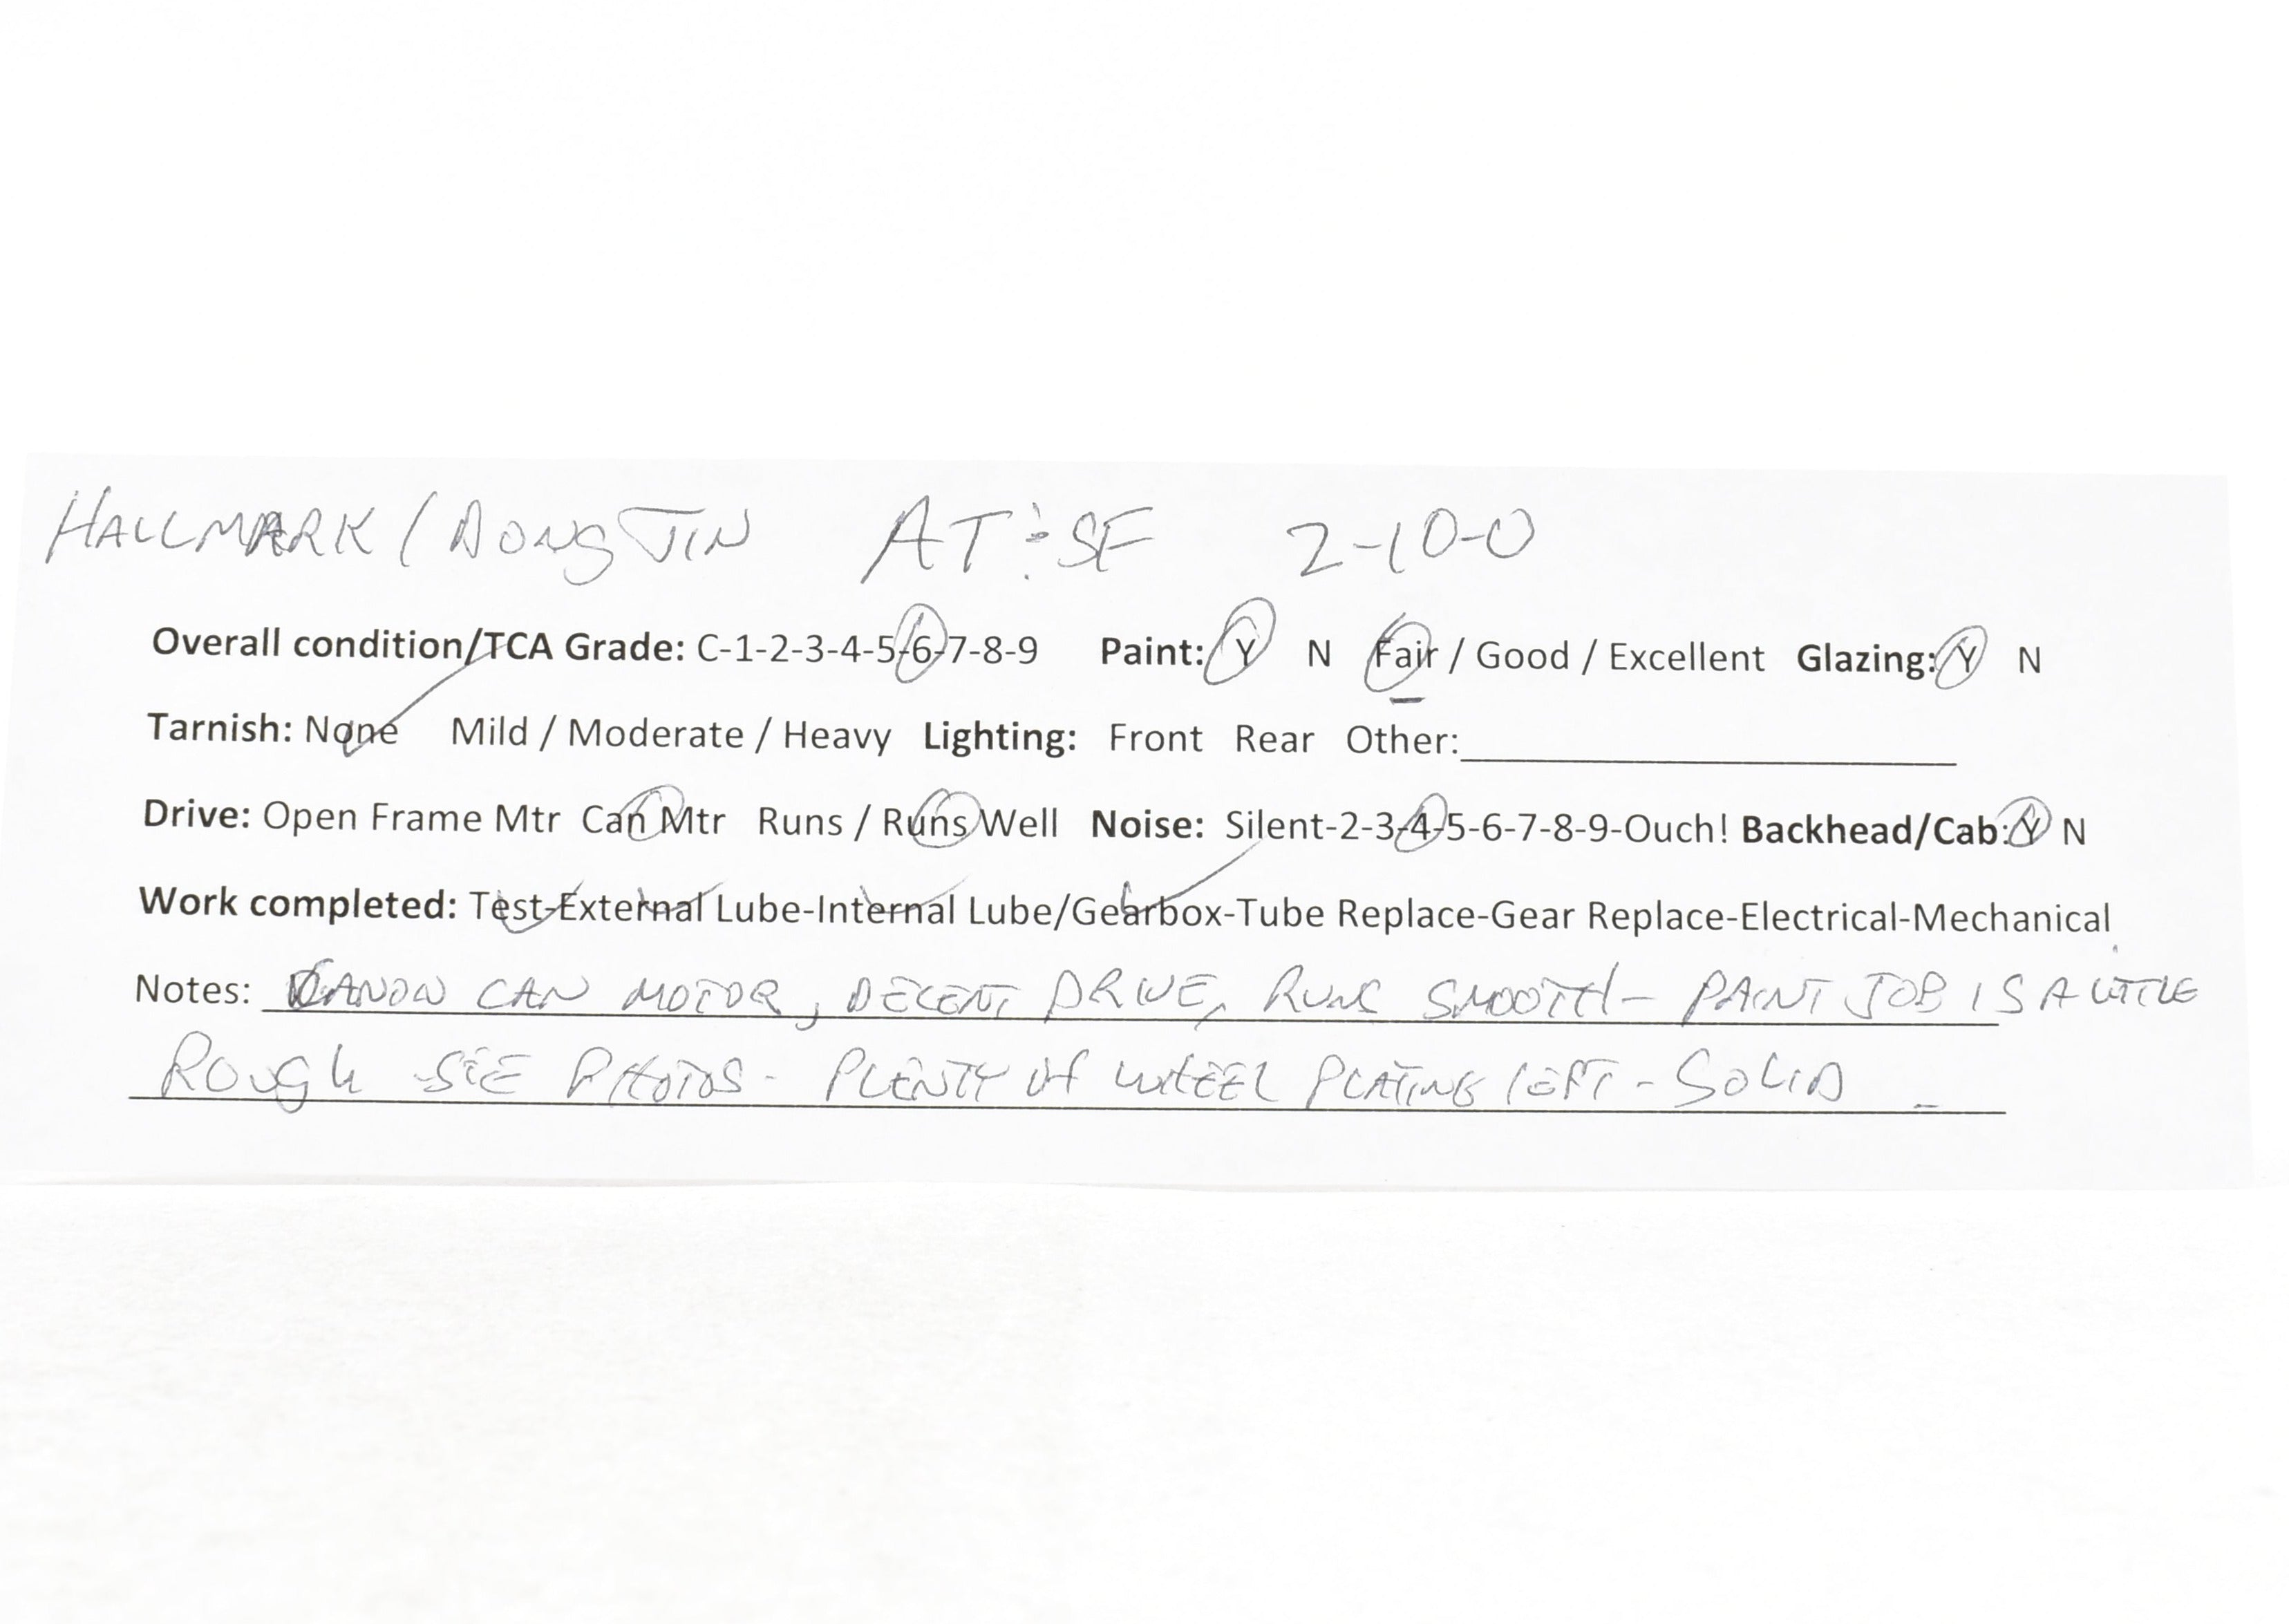 HALLMARK / DONG JIN AT&SF 2-10-0
Overall condition/TCA Grade: C-1-2-3-4-5-6-7-8-9 Paint: Y N Fair / Good / Excellent Glazing: Y N
Tarnish: None Mild / Moderate / Heavy Lighting: Front Rear Other:
Drive: Open Frame Mtr Can Mtr Runs / Runs Well Noise: Silent-2-3-4-5-6-7-8-9-Ouch! Backhead/Cab: Y N
Work completed: Test-External Lube-Internal Lube/Gearbox-Tube Replace-Gear Replace-Electrical-Mechanical
Notes: CANON CAN MOTOR, DECENT DRIVE, RUNS SMOOTH - PAINT JOB IS A LITTLE
ROUGH SEE PHOTOS - PLENTY OF WHEEL PLATING LEFT - SOLID